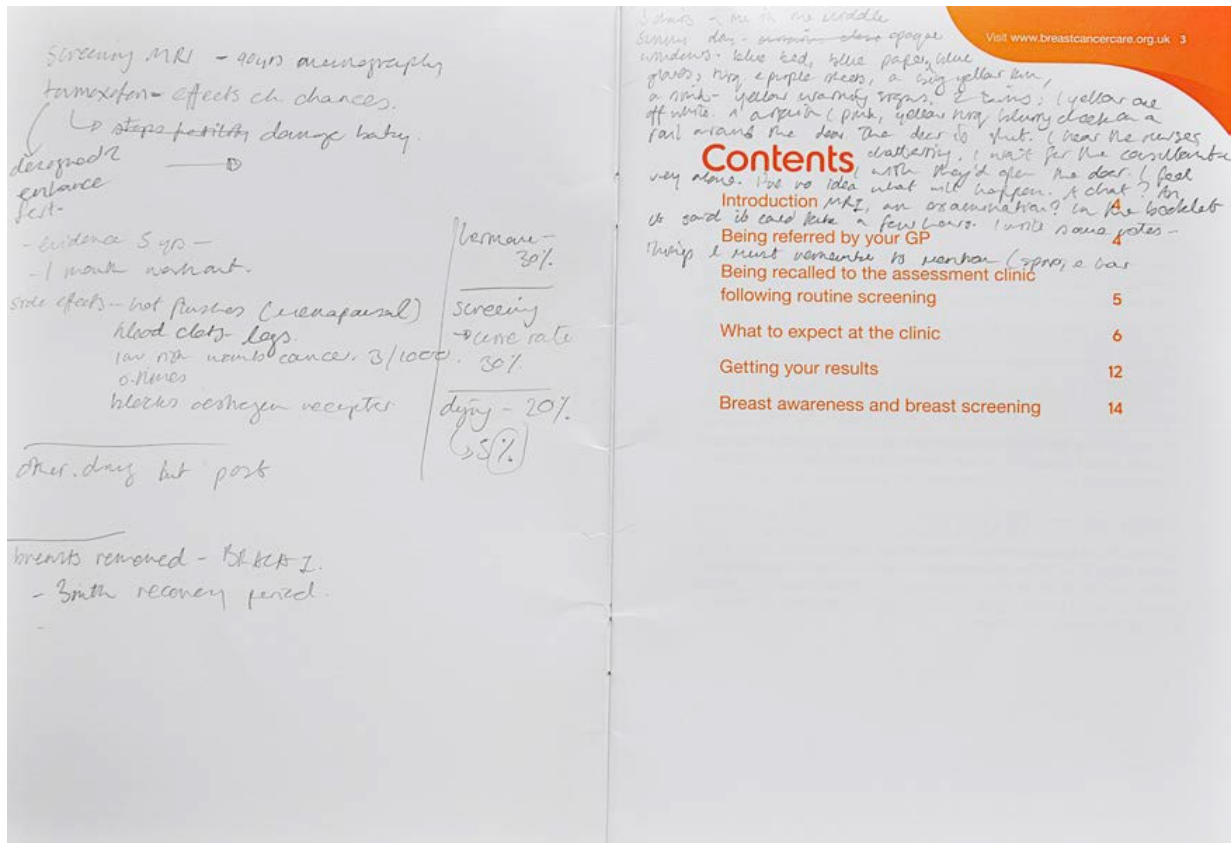 screening MRI - 40yrs mamography
tamoxifen - effects ch. chances.
↳ steps fertility damage baby.
designed 2
enhance
fert-
- evidence 5 yrs -
- 1 month washout.
side effects - hot flushes (menopausal)
blood clots - legs.
low risk womb cancer. 3/1000.
blocks oestrogen receptor
hormone -
30%
screening
→ cure rate
30%.
dying - 20%
↳ 5%
other drug but post
breasts removed - BRACA 1.
- 3mth recovery period.
-
Visit www.breastcancercare.org.uk 3
3 chairs - me in the middle
sunny day - opaque
windows - blue bed, blue paper, blue
gloves, turq. & purple sheets, a big yellow bin,
a sink - yellow warning signs. 2 bins; 1 yellow one
off white. A curtain (pink, yellow turq blurry check on a
rail around the door. The door is shut. I hear the nurses
chattering. I wait for the consultant
I wish they'd open the door. I feel
very alone. I've no idea what will happen. A chat? An
MRI, an examination? In the booklet
it said it could take a few hours. I write some notes -
things I must remember to mention (
Contents
Introduction 4
Being referred by your GP 4
Being recalled to the assessment clinic
following routine screening 5
What to expect at the clinic 6
Getting your results 12
Breast awareness and breast screening 14